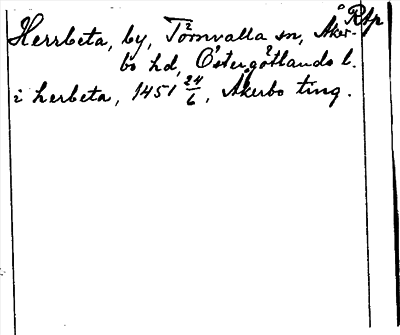 Rtp
Herrbeta, by, Törnvalla sn, Åker-
bo hd, Östergötlands l.
i herbeta, 1451 24/6, Åkerbo ting.